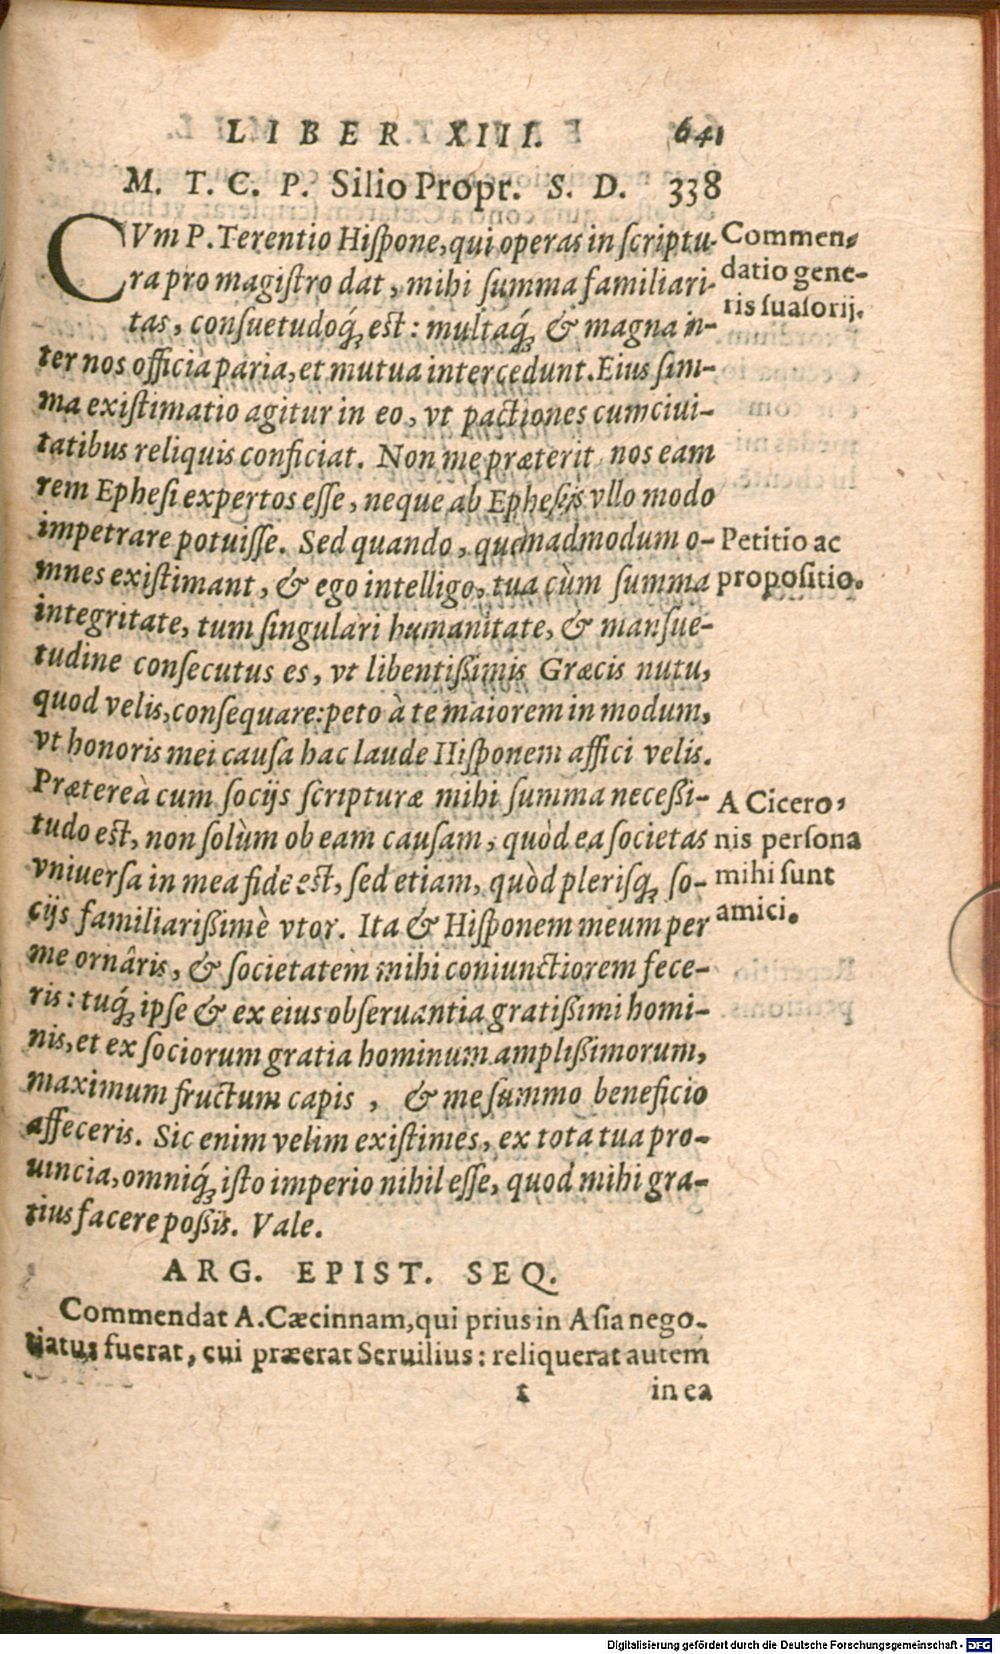 LIBER XIII. 641
M. T. C. P. Silio Propr. S. D. 338
CVm P. Terentio Hiſpone, qui operas in ſcriptu-
ra pro magiſtro dat, mihi ſumma familiari-
tas, conſuetudoq́; eſt: multaq́; & magna in-
ter nos officia paria, et mutua intercedunt. Eius ſim-
ma exiſtimatio agitur in eo, vt pactiones cum ciui-
tatibus reliquis conficiat. Non me præterit, nos eam
rem Epheſi expertos eſſe, neque ab Epheſijs vllo modo
impetrare potuiſſe. Sed quando, quemadmodum o-
mnes exiſtimant, & ego intelligo, tua cùm ſumma
integritate, tum ſingulari humanitate, & manſue-
tudine conſecutus es, vt libentißimis Græcis nutu,
quod velis, conſequare: peto à te maiorem in modum,
vt honoris mei cauſa hac laude Hiſponem affici velis.
Prætereà cum ſocijs ſcripturæ mihi ſumma neceßi-
tudo eſt, non ſolùm ob eam cauſam, quòd ea societas
vniuerſa in mea fide eſt, ſed etiam, quòd pleriſq; ſo-
cijs familiarißimè vtor. Ita & Hiſponem meum per
me ornâris, & ſocietatem mihi coniunctiorem fece-
ris: tuq́; ipſe & ex eius obſeruantia gratißimi homi-
nis, et ex ſociorum gratia hominum amplißimorum,
maximum fructum capis, & me ſummo beneficio
affeceris. Sic enim velim exiſtimes, ex tota tua pro-
uincia, omniq́; iſto imperio nihil eſſe, quod mihi gra-
tius facere poßis. Vale.
Commen-
datio gene-
ris ſuaſorij.
Petitio ac
propoſitio.
A Cicero-
nis perſona
mihi ſunt
amici.
ARG. EPIST. SEQ.
Commendat A. Cæcinnam, qui prius in Aſia nego-
tiatus fuerat, cui præerat Seruilius: reliquerat autem
t in ea
Digitalisierung gefördert durch die Deutsche Forschungsgemeinschaft - DFG